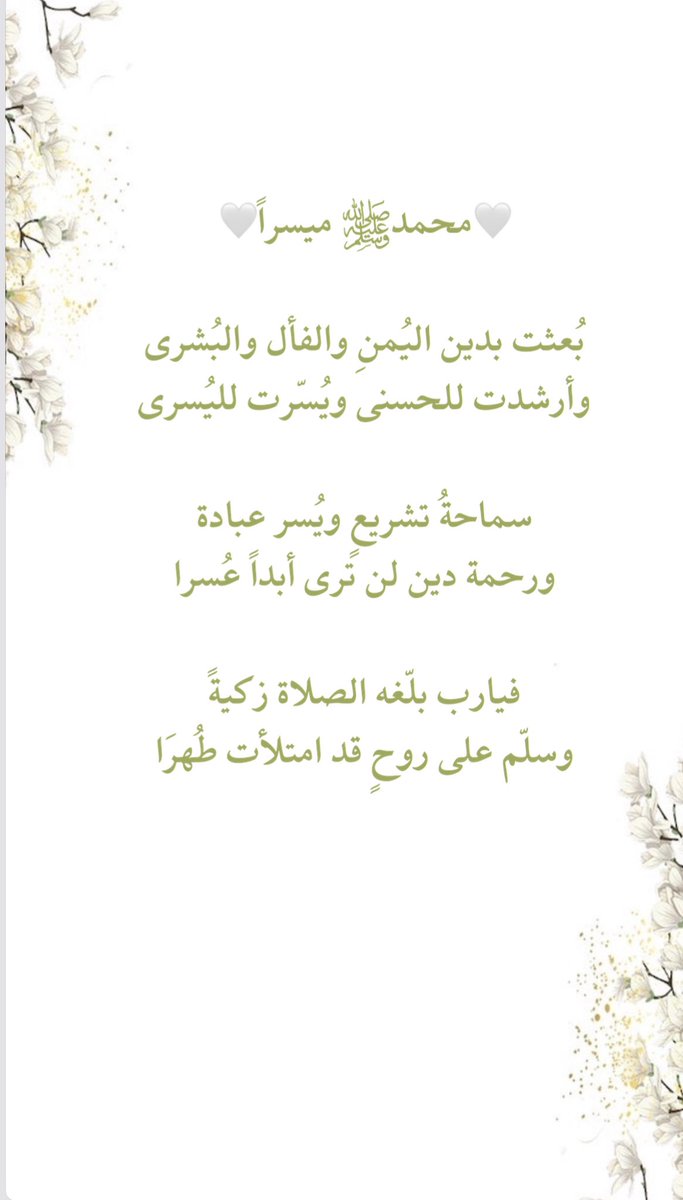 🤍محمدﷺ ميسراً🤍
بُعثت بدين اليُمنِ والفأل والبُشرى
وأرشدت للحسنى ويُسّرت لليُسرى
سماحةُ تشريعٍ ويُسر عبادة
ورحمة دين لن تًرى أبداً عُسرا
فيارب بلّغه الصلاة زكيةً
وسلّم على روحٍ قد امتلأت طُهرَا